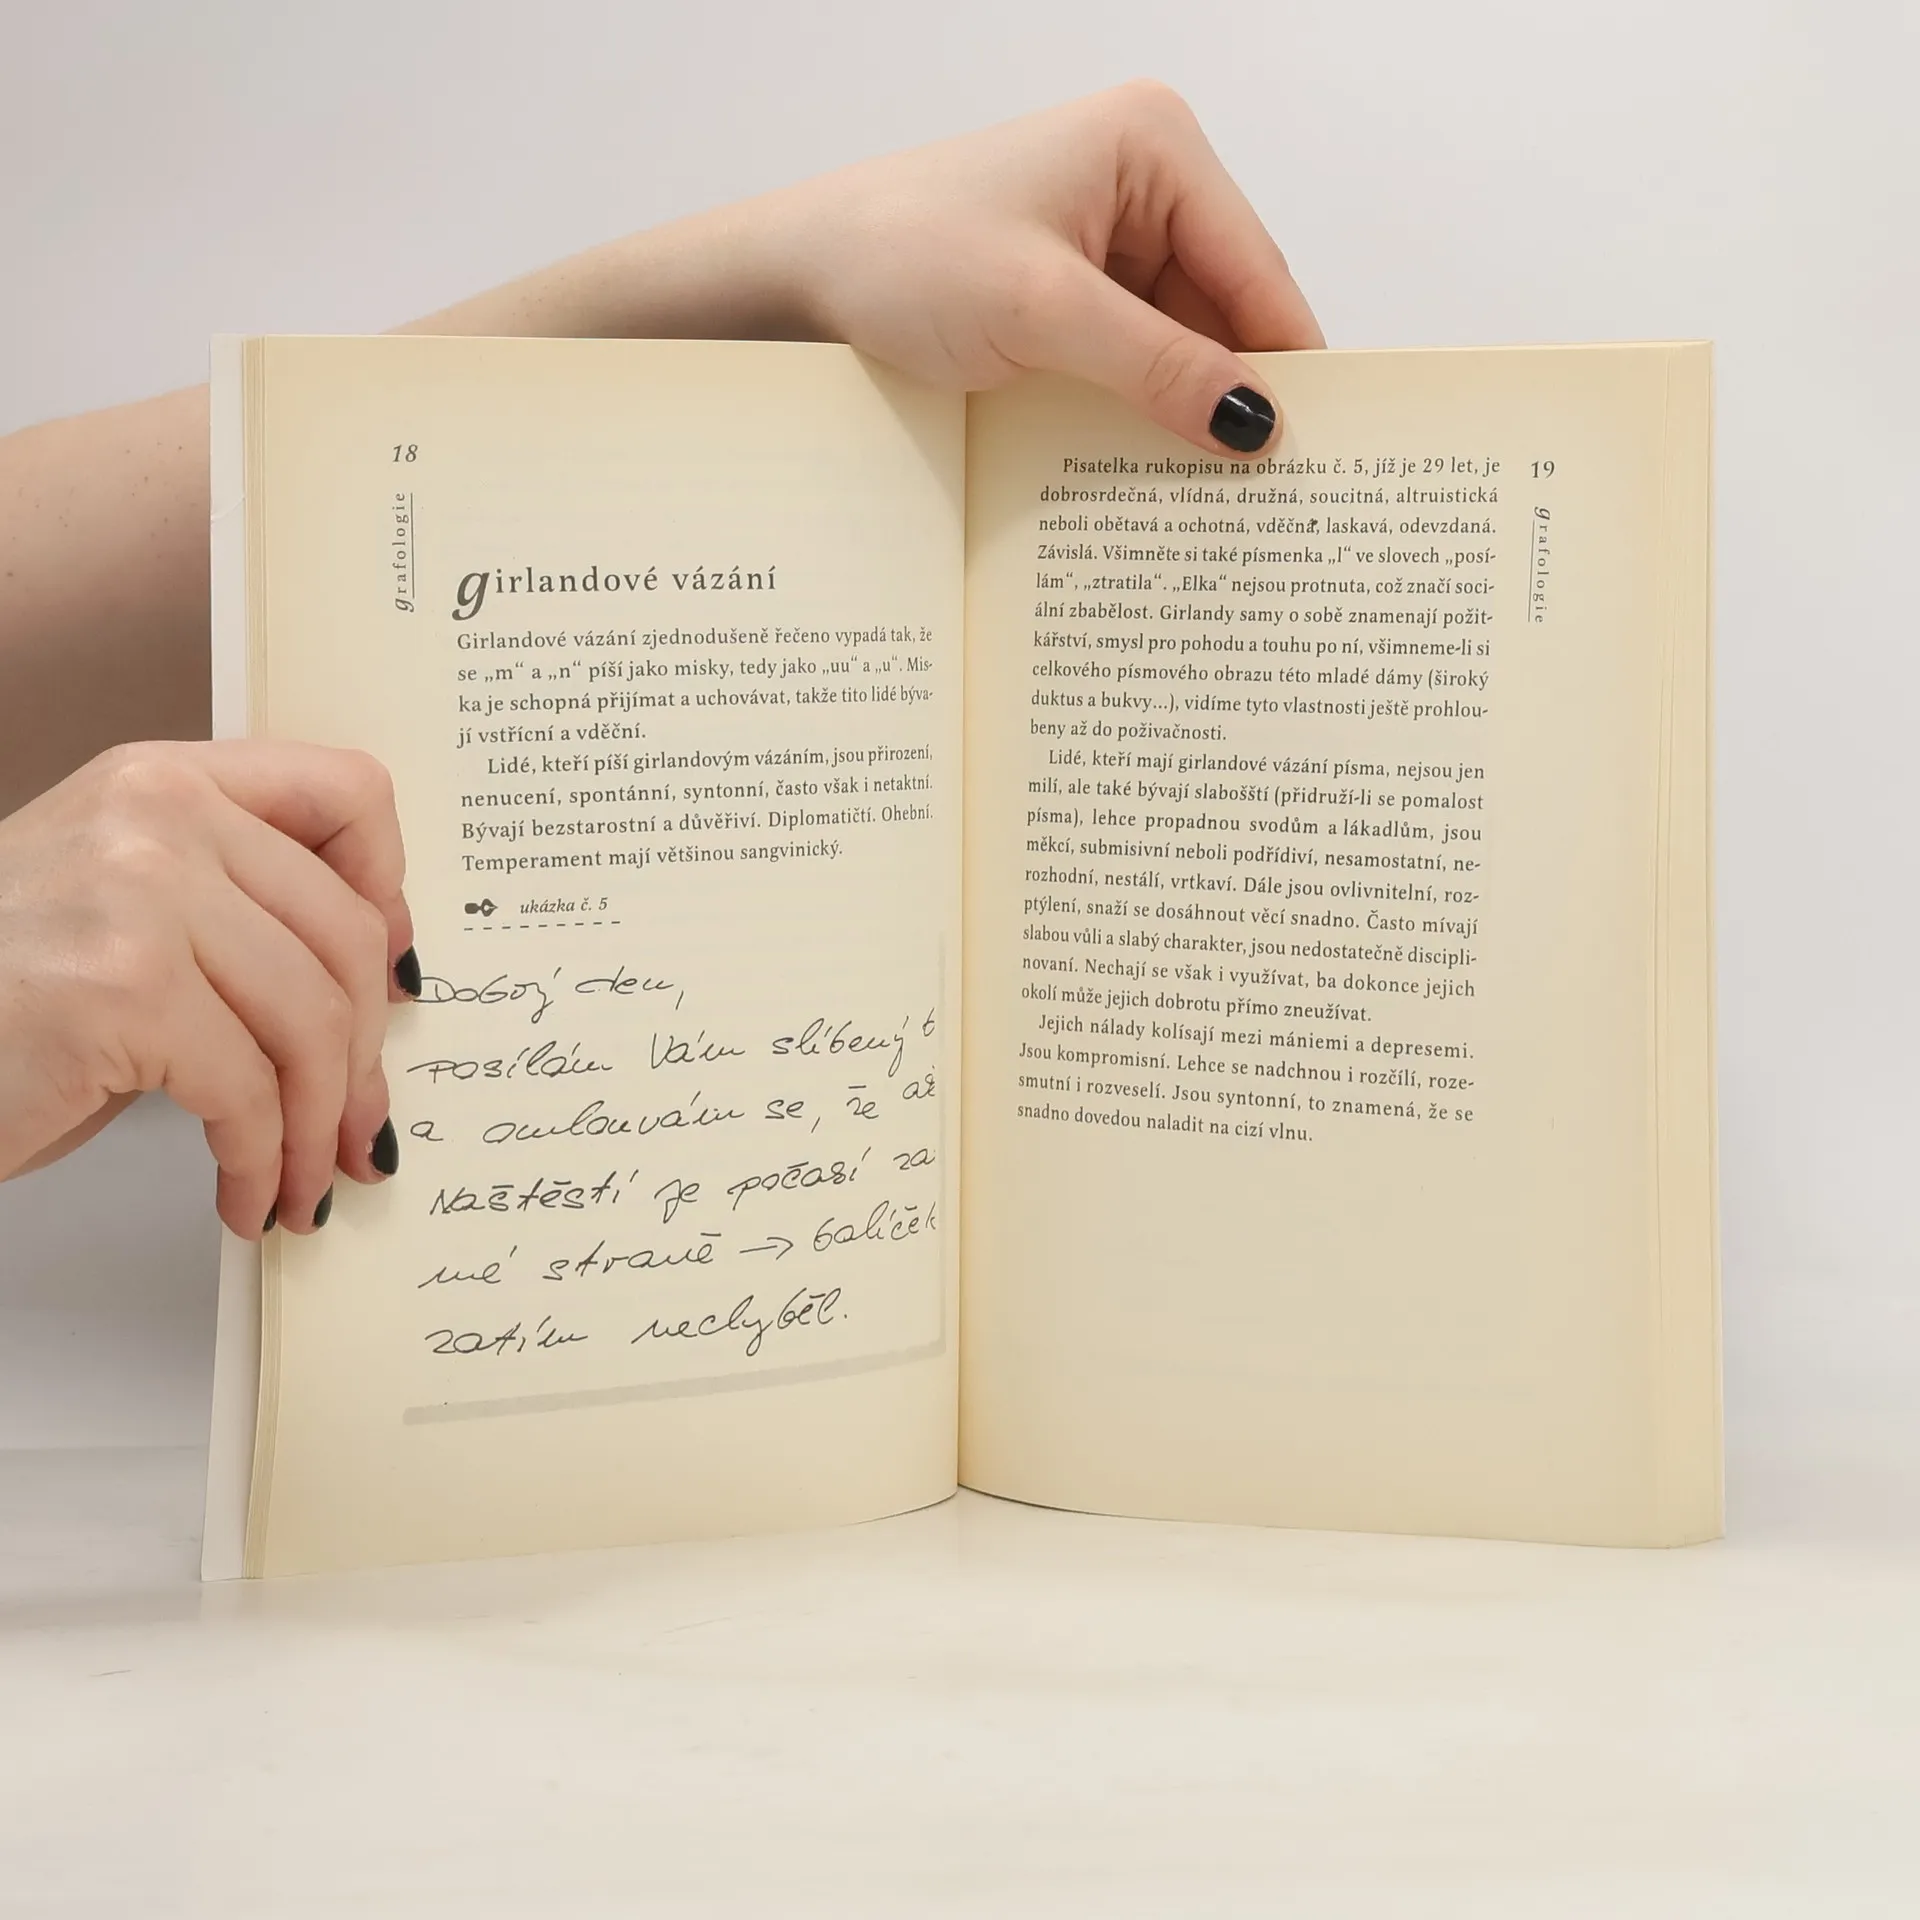 18
grafologie
girlandové vázání
Girlandové vázání zjednodušeně řečeno vypadá tak, že
se „m“ a „n“ píší jako misky, tedy jako „uu“ a „u“. Mis-
ka je schopná přijímat a uchovávat, takže tito lidé býva-
jí vstřícní a vděční.
Lidé, kteří píší girlandovým vázáním, jsou přirození,
nenucení, spontánní, syntonní, často však i netaktní.
Bývají bezstarostní a důvěřiví. Diplomatičtí. Ohební.
Temperament mají většinou sangvinický.
ukázka č. 5
Dobrý den,
posílám Vám slíbený
a omlouvám se, že
Naštěstí je počasí
mé straně → balíček
zatím nechyběl.
Pisatelka rukopisu na obrázku č. 5, jíž je 29 let, je
dobrosrdečná, vlídná, družná, soucitná, altruistická
neboli obětavá a ochotná, vděčná, laskavá, odevzdaná.
Závislá. Všimněte si také písmenka „l“ ve slovech „posí-
lám“, „ztratila“. „Elka“ nejsou protnuta, což značí soci-
ální zbabělost. Girlandy samy o sobě znamenají požit-
kářství, smysl pro pohodu a touhu po ní, všimneme-li si
celkového písmového obrazu této mladé dámy (široký
duktus a bukvy...), vidíme tyto vlastnosti ještě prohlou-
beny až do poživačnosti.
Lidé, kteří mají girlandové vázání písma, nejsou jen
milí, ale také bývají slabošští (přidruží-li se pomalost
písma), lehce propadnou svodům a lákadlům, jsou
měkcí, submisivní neboli podřídiví, nesamostatní, ne-
rozhodní, nestálí, vrtkaví. Dále jsou ovlivnitelní, roz-
ptýlení, snaží se dosáhnout věcí snadno. Často mívají
slabou vůli a slabý charakter, jsou nedostatečně discipli-
novaní. Nechají se však i využívat, ba dokonce jejich
okolí může jejich dobrotu přímo zneužívat.
Jejich nálady kolísají mezi mániemi a depresemi.
Jsou kompromisní. Lehce se nadchnou i rozčílí, roze-
smutní i rozveselí. Jsou syntonní, to znamená, že se
snadno dovedou naladit na cizí vlnu.
19
grafologie